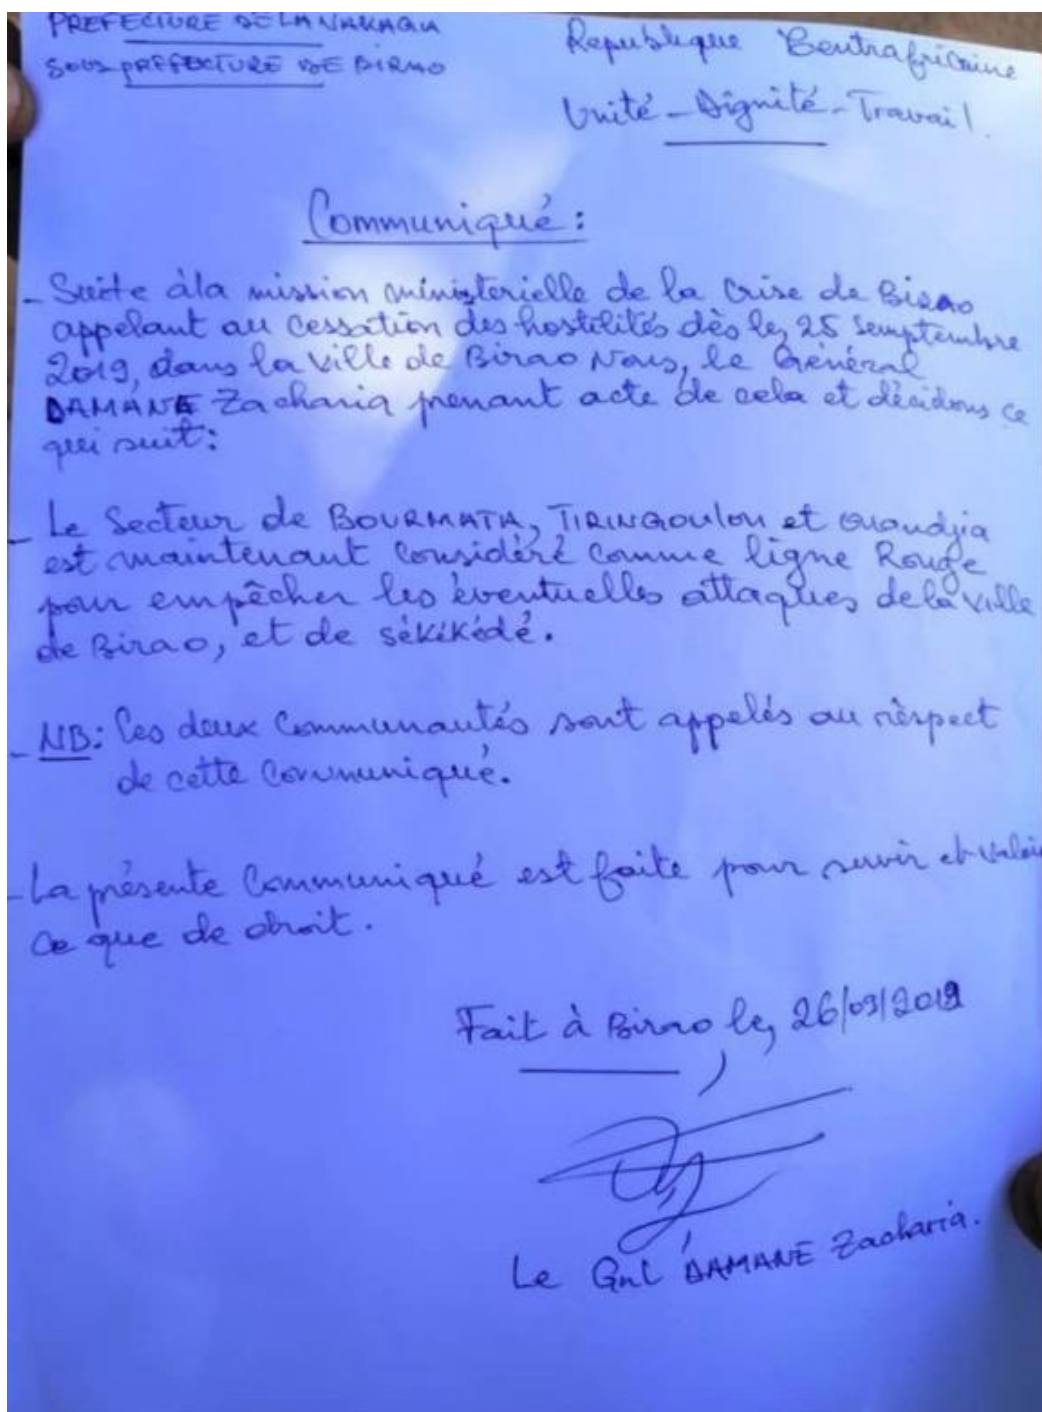 PREFECTURE DE LA VAKAGA
SOUS PREFECTURE DE BIRAO
Republique Centrafricaine
Unité - Dignité - Travail.
Communiqué :
- Suite àla mission ministerielle de la Crise de Birao
appelant au cessation des hostilités dès le, 25 Semptembre
2019, dans la ville de Birao Nous, le Général
DAMANE Zacharia prenant acte de cela et décidons ce
qui suit :
- Le Secteur de BOURMATA, TIRINGOULOU et Ouandjia
est maintenant Considéré Comme ligne Rouge
pour empêcher les éventuelles attaques de la ville
de Birao, et de sékikédé.
- NB : Les deux Communautés sont appelés au rèspect
de cette Communiqué.
- La présente Communiqué est faite pour servir et valoir
Ce que de droit.
Fait à Birao le, 26/09/2019
Le Gnl DAMANE Zacharia.